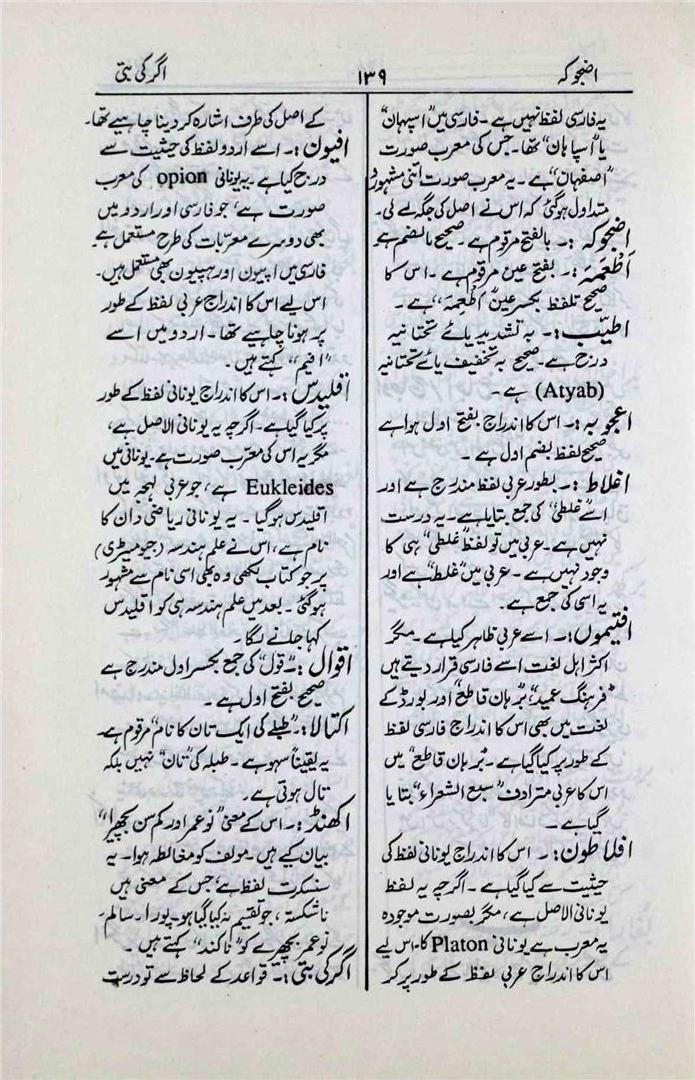 اضحوکہ
۱۳۹
اگر کی بتی
یہ فارسی لفظ نہیں ہے ۔ فارسی میں "اسپہان"
یا "اسپاہان" تھا۔ جس کی معرب صورت
"اصفہان" ہے ۔ یہ معرب صورت اتنی مشہور و
متداول ہوگئی کہ اس نے اصل کی جگہ لے لی۔
اضحوکہ :۔ بالفتح مرقوم ہے ۔ صحیح بالضم ہے
اَطْعَمَہ :۔ بفتح عین مرقوم ہے ۔ اس کا
صحیح تلفظ بکسر عین "اَطْعِمَہ" ہے ۔
اطیَب :۔ بہ تشدید یائے تحتانیہ
درج ہے۔ صحیح بہ تخفیف یائے تحتانیہ
(Atyab) ہے ۔
اعجوبہ :۔ اس کا اندراج بفتح اول ہوا ہے
صحیح لفظ بضم اول ہے ۔
اغلاط :۔ بطور عربی لفظ مندرج ہے اور
اسے "غلطی" کی جمع بتایا ہے۔ یہ درست
نہیں ہے ۔ عربی میں تو لفظ "غلطی" ہی کا
وجود نہیں ہے ۔ عربی میں "غلط" ہے اور
یہ اسی کی جمع ہے ۔
افتیموں :۔ اسے عربی ظاہر کیا ہے ۔ مگر
اکثر اہل لغت اسے فارسی قرار دیتے ہیں
"فرہنگ عمید"، "بُرہان قاطع" اور بورڈ کے
لغت میں بھی اس کا اندراج فارسی لفظ
کے طور پر کیا گیا ہے ۔ "بُرہان قاطع" میں
اس کا عربی مترادف "سبع الشعراء" بتایا
گیا ہے ۔
افلاطون :۔ اس کا اندراج یونانی لفظ کی
حیثیت سے کیا گیا ہے ۔ اگرچہ یہ لفظ
یونانی الاصل ہے ، مگر بصورت موجودہ
یہ معرب ہے یونانی Platon کا۔ اس لیے
اس کا اندراج عربی لفظ کے طور پر کر
کے اصل کی طرف اشارہ کر دینا چاہیے تھا۔
افیون :۔ اسے اردو لفظ کی حیثیت سے
درج کیا ہے ۔ یہ یونانی opion کی معرب
صورت ہے ، جو فارسی اور اردو میں
بھی دوسرے معرّبات کی طرح مستعمل ہے
فارسی میں اپیون اور ہپیون بھی مستعمل ہیں۔
اس لیے اس کا اندراج عربی لفظ کے طور
پر ہونا چاہیے تھا ۔ اردو میں اسے
"افیم" کہتے ہیں ۔
اقلیدس :۔ اس کا اندراج یونانی لفظ کے طور
پر کیا گیا ہے۔ اگرچہ یہ یونانی الاصل ہے ،
مگر یہ اس کی معرّب صورت ہے۔ یونانی میں
Eukleides ہے ، جو عربی لہجہ میں
اقلیدس ہوگیا ۔ یہ یونانی ریاضی دان کا
نام ہے ، اس نے علم ہندسہ (جیومیٹری)
پر جو کتاب لکھی وہ بھی اسی نام سے مشہور
ہوگئی ۔ بعد میں علم ہندسہ ہی کو اقلیدس
کہا جانے لگا ۔
اقوال :۔ "قول" کی جمع بکسر اول مندرج ہے
صحیح بفتح اول ہے ۔
اکتالا :۔ "طبلے کی ایک تان کا نام" مرقوم ہے۔
یہ یقیناً سہو ہے ۔ طبلہ کی "تان" نہیں بلکہ
تال ہوتی ہے ۔
اکھنڈ :۔ اس کے معنی "نوعمر اور کم سن بچھیرا"
بیان کیے ہیں۔ مولف کو مغالطہ ہوا ۔ یہ
سنسکرت لفظ ہے ، جس کے معنی ہیں
ناشکستہ ، جو تقسیم نہ کیا گیا ہو۔ پورا ۔ سالم۔
نوعمر بچھیرے کو "ناکند" کہتے ہیں ۔
اگر کی بتی :۔ قواعد کے لحاظ سے تو درست